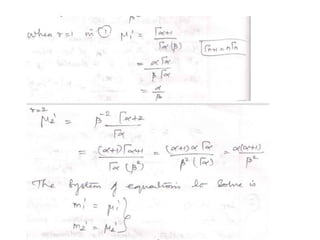 β
when r=1 in ① μ₁' = Γα+1 / Γα (β)
Γn+1 = nΓn
= αΓα / βΓα
= α / β
r=2
μ₂' = β⁻² Γα+2 / Γα
= (α+1)Γα+1 / Γα (β²) = (α+1)αΓα / β² (Γα) = α(α+1) / β²
The System of equations to Solve is
m₁' = μ₁'
m₂' = μ₂'